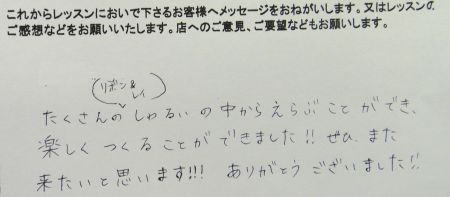 これからレッスンにおいで下さるお客様へメッセージをおねがいします。又はレッスンの
ご感想などをお願いいたします。店へのご意見、ご要望などもお願いします。
(リボン&
レイ)
たくさんのしゅるいの中からえらぶことができ、
楽しくつくることができました!! ぜひ、また
来たいと思います!!! ありがとうございました!!